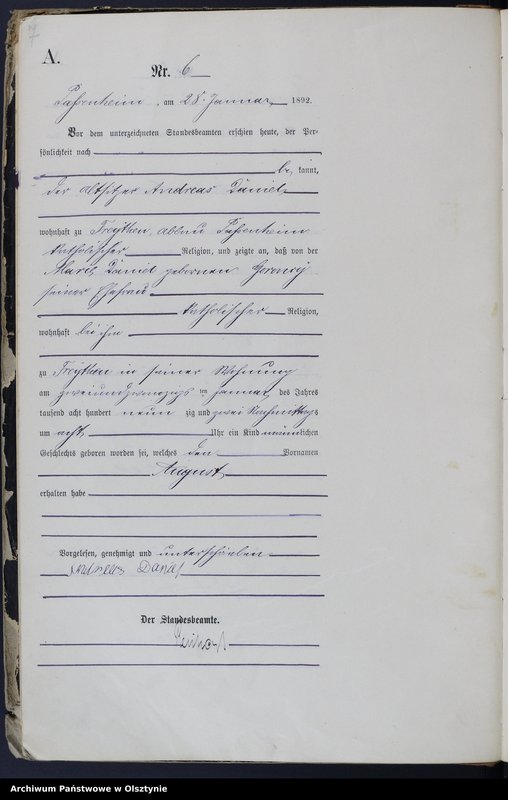 7
A.
Nr. 6
Passenheim, am 28. Januar 1892.
Vor dem unterzeichneten Standesbeamten erschien heute, der Per-
sönlichkeit nach
be kannt,
der Altsitzer Andreas Daniel
wohnhaft zu abbau Passenheim
katholischer Religion, und zeigte an, daß von der
geborenen
seiner Ehefrau
katholischer Religion,
wohnhaft bei ihm
zu in seiner Wohnung
am zweiundzwanzigsten Januar des Jahres
tausend acht hundert neun zig und zwei Nachmittags
um acht Uhr ein Kind männlichen
Geschlechts geboren worden sei, welches den Vornamen
August
erhalten habe
Vorgelesen, genehmigt und unterschrieben
Andreas
Der Standesbeamte.
Archiwum Państwowe w Olsztynie